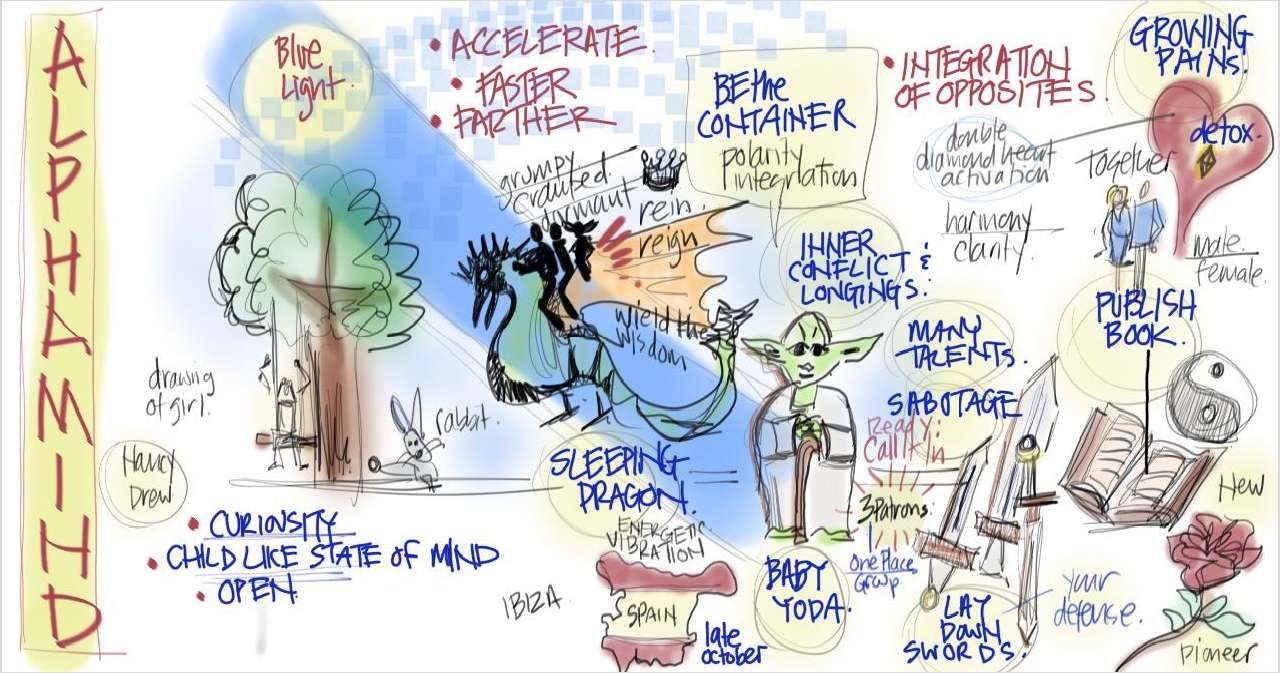 ALPHAMIND
Blue
Light.
• ACCELERATE.
• FASTER
• FARTHER
BE the
CONTAINER
polarity
integration
• INTEGRATION
OF OPPOSITES.
GROWING
PAINS.
detox.
double
diamond heart
activation
together
harmony
clarity.
male
female.
grumpy
dormant
rein.
reign
wield the
wisdom
INNER
CONFLICT &
LONGINGS.
MANY
TALENTS.
SABOTAGE
PUBLISH
BOOK.
drawing
of girl.
rabbit.
Nancy
Drew
• CURIOSITY
• CHILD LIKE STATE OF MIND
• OPEN
SLEEPING
DRAGON.
ENERGETIC
VIBRATION
IBIZA.
SPAIN
late
october
BABY
YODA.
Ready:
Call it In
3 Patrons
One Place
Group
LAY
DOWN
SWORDS.
your
defense.
New
pioneer